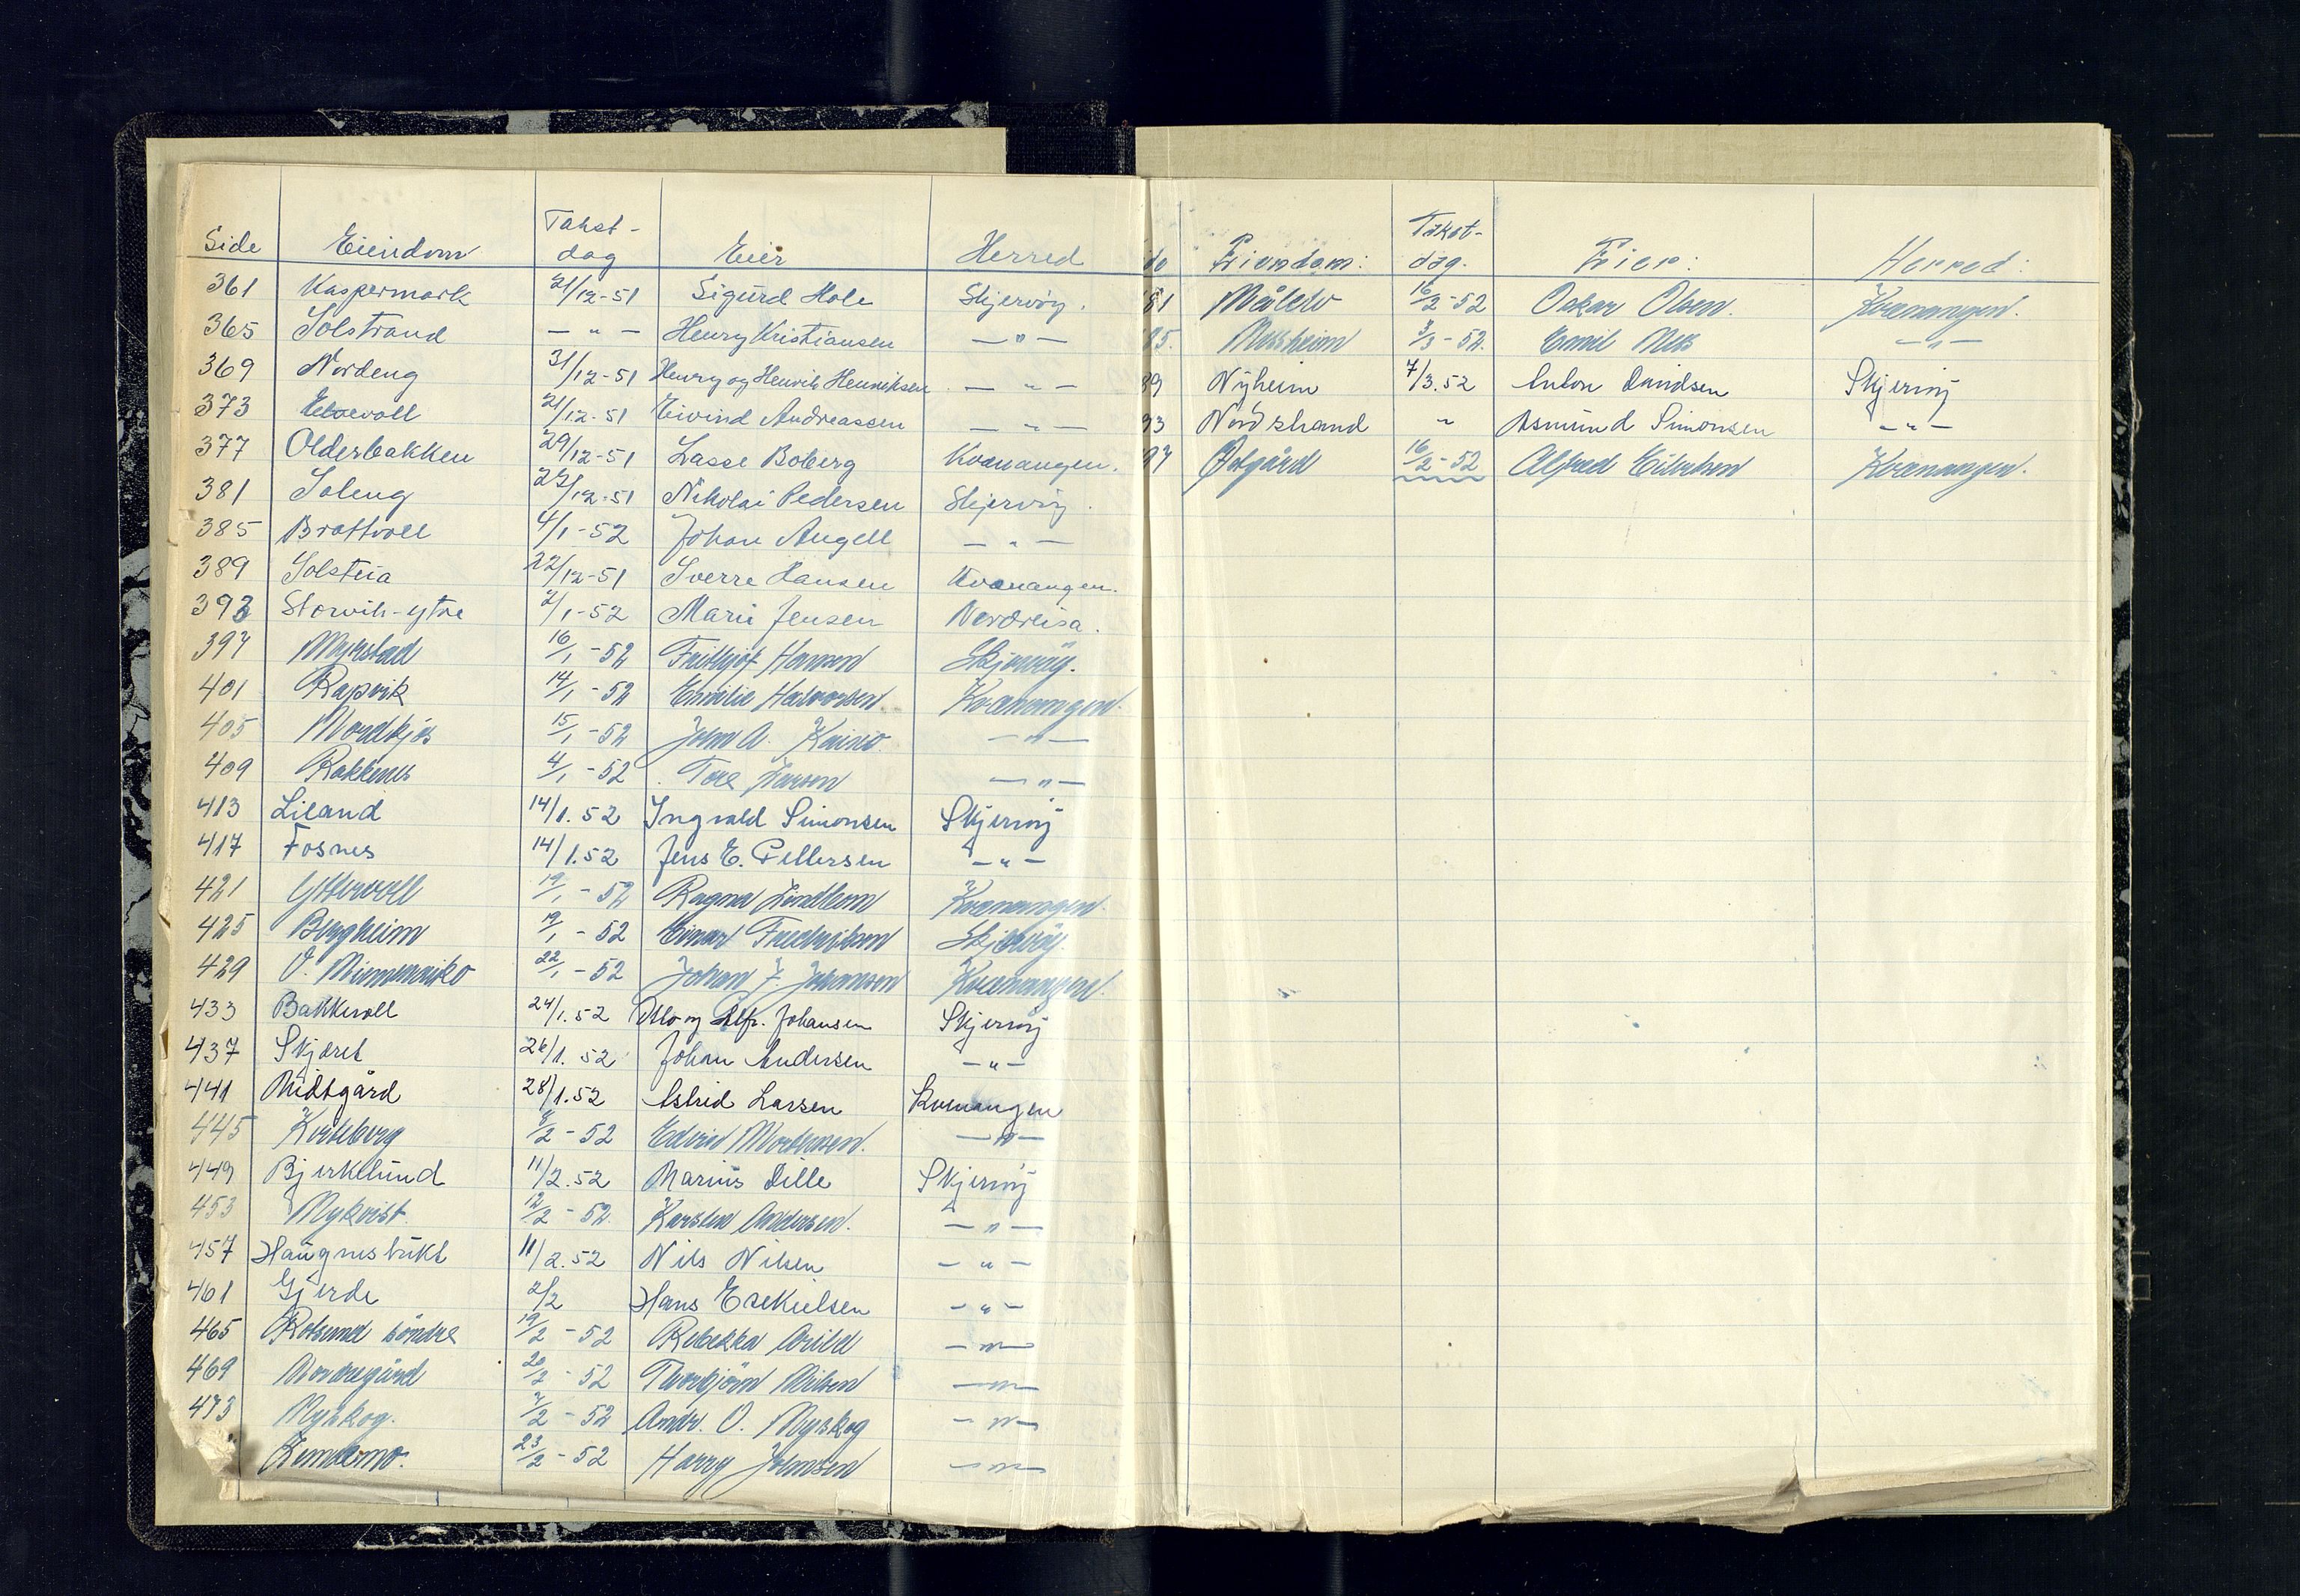 Side Eiendom Takst-dag Eier Herred
361 Kaspermark 21/12-51 Sigurd Hole Skjervöy.
365 Solstrand — " — Henry Kristiansen — " —
369 Nordeng 31/12-51 Henry og Henrik Henriksen — " —
373 21/12-51 Eivind Andreassen — " —
377 Olderbakken 29/12-51 Lasse Boberg Kvænangen.
381 Soleng 22/12-51 Nikolai Pedersen Skjervöy.
385 Brattvoll 4/1-52 Johan Angell — " —
389 Solsteia 22/12-51 Sverre Hansen Kvænangen.
393 Storvik-ytre 2/1-52 Marie Jensen Nordreisa.
397 Mykstad 16/1-52 Frithjof Hansen Skjervöy.
401 Rapvik 14/1-52 Emilie Halvorsen Kvænangen.
405 15/1-52 John A. Kaino — " —
409 Rakkenes 4/1-52 Tore Larsen — " —
413 Liland 14/1.52 Ingvald Simonsen Skjervøy
417 Fosnes 14/1.52 Jens E. Pettersen — " —
421 19/1-52 Ragna Lindbom Kvænangen.
425 Bergheim 19/1-52 Einar Fredriksen Skjervöy.
429 22/1-52 Johan J. Johansen Kvænangen.
433 Bakkevoll 24/1.52 Otto og Alfr. Johansen Skjervøy
437 Skjæret 26/1.52 Johan Andersen — " —
441 Midtgård 28/1.52 Astrid Larsen Kvænangen
445 8/2-52 Edvin Mortensen. — " —
449 Bjerklund 11/2.52 Marius Lille Skjervøy
453 Nykvist. 12/2-52. Karsten Andersen. — " —
457 Haugnesbukt 11/2.52 Nils Nilsen — " —
461 Gjerde 2/2 Hans Esekielsen — " —
465 Rotsund söndre 19/2-52 Rebekka Arild — " —
469 Nordregård 20/2-52 Thorbjörn Nilsen — " —
473 Nyskog. 7/2-52 Andr. O. Nyskog — " —
" 23/2-52 Harry Johnsen — " —
de Eiendom: Takst-dag. Eier: Herred:
81 16/2-52 Oskar Olsen. Kvænangen.
85. Nessheim 3/3-52. Emil Ness — " —
89 Nyheim 7/3.52 Anton Davidsen Skjervøy
93 Nordstrand " Asmund Simonsen — " —
97 Øvlgård 16/2-52 Alfred Eilertsen Kvænangen.